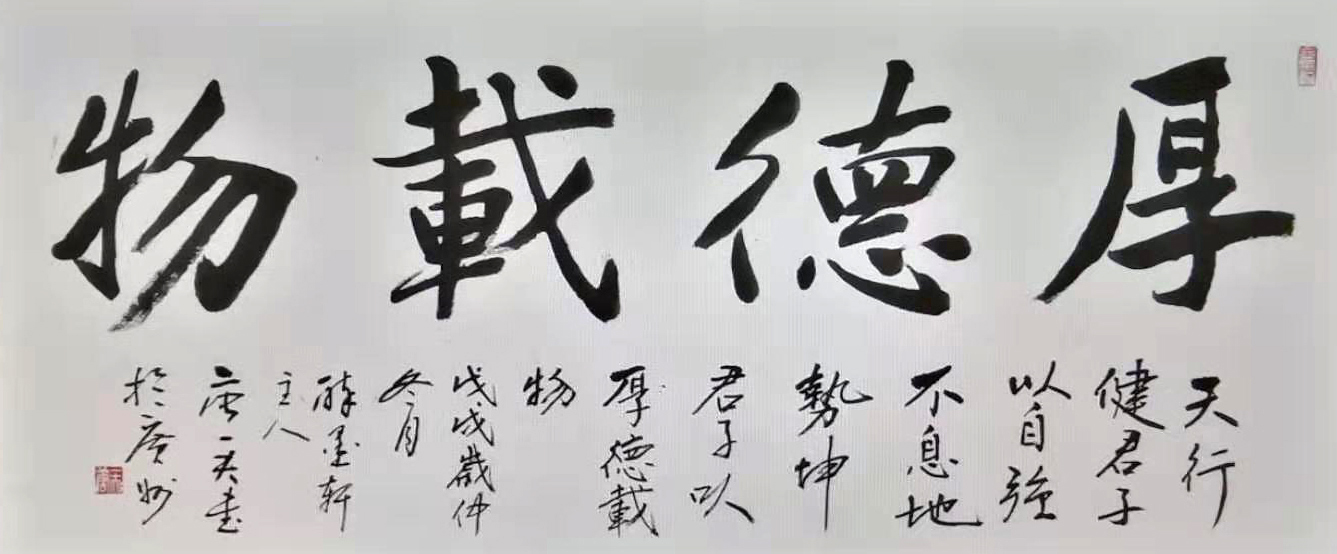 厚德載物
天行
健君子
以自強
不息地
勢坤
君子以
厚德載
物
戊戌歲仲
冬月
醉墨軒
主人
一夫書
於廣州